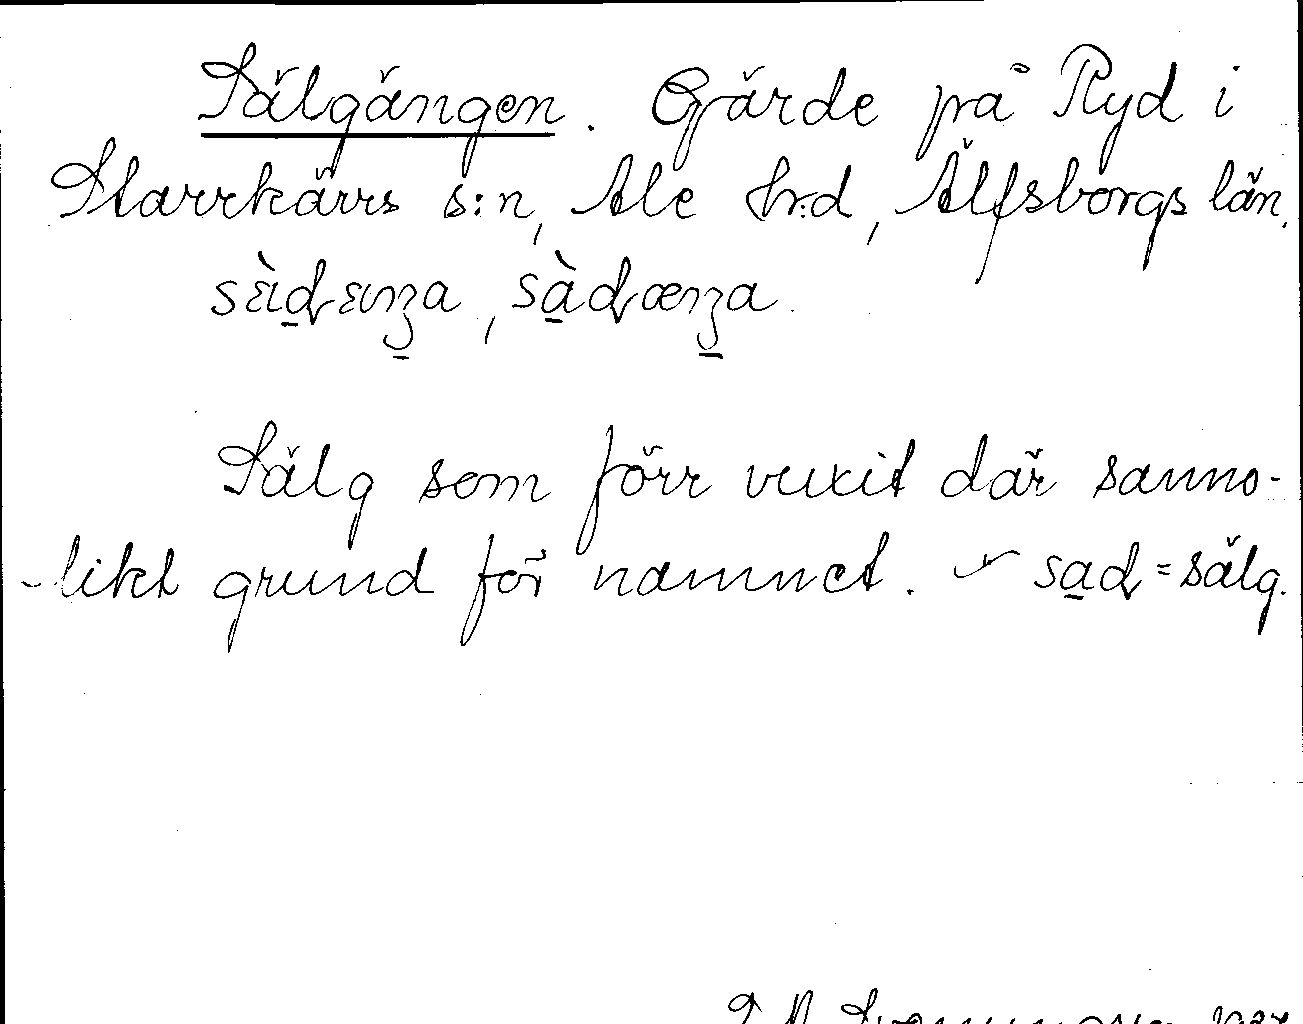 Sälgängen. Gärde på Ryd i
Starrkärrs s:n, Ale hr:d, Älfsborgs län.
Sälg som förr vuxit där sanno-
-likt grund för namnet. sad = sälg.